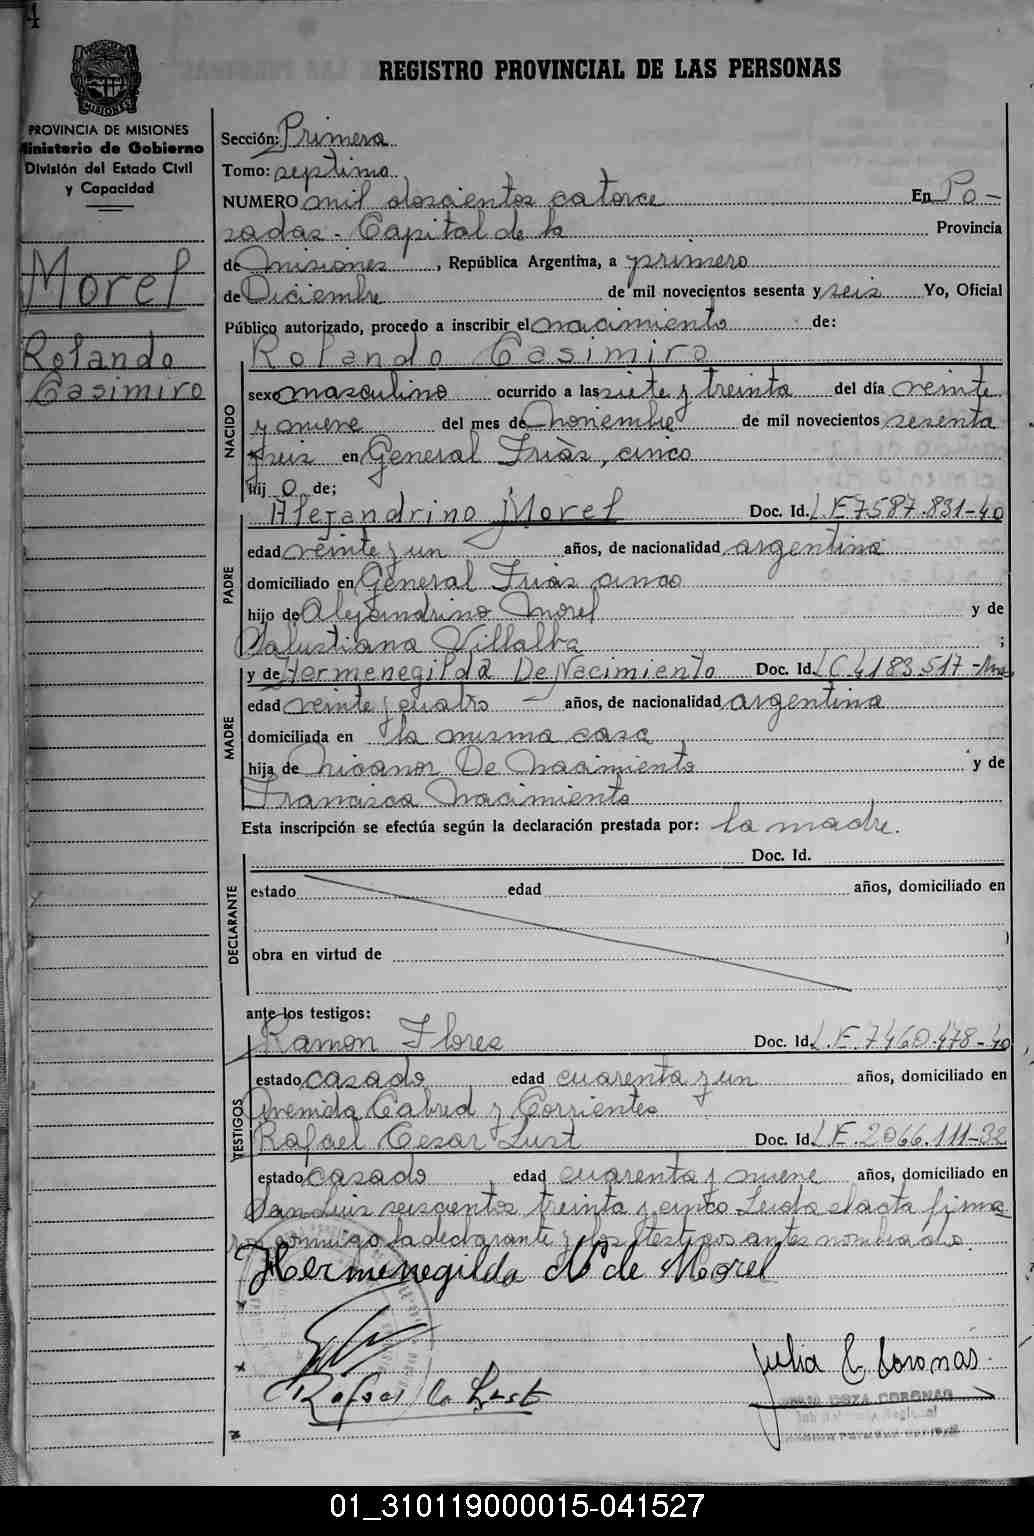 REGISTRO PROVINCIAL DE LAS PERSONAS
MISIONES
PROVINCIA DE MISIONES
Ministerio de Gobierno
División del Estado Civil
y Capacidad
Morel
Rolando
Casimiro
Sección: Primera
Tomo: septimo
NUMERO mil doscientos catorce En Po-
sadas - Capital de la Provincia
de Misiones, República Argentina, a primero
de Diciembre de mil novecientos sesenta y seis Yo, Oficial
Público autorizado, procedo a inscribir el nacimiento de:
Rolando Casimiro
NACIDO
sexo masculino ocurrido a las siete y treinta del día veinte
y nueve del mes de Noviembre de mil novecientos sesenta
y seis en General Frías, cinco
hij o de;
PADRE
Alejandrino Morel Doc. Id. L.E. 7587.831-40
edad veinte y un años, de nacionalidad argentina
domiciliado en General Frias cinco
hijo de Alejandrino Morel y de
Salustiana Villalba ;
MADRE
y de Hermenegilda De Nacimiento Doc. Id. L.C. 4183.517-
edad veinte y cuatro - años, de nacionalidad argentina
domiciliada en la misma casa
hija de Nicanor De Nacimiento y de
Francisca Nacimiento
Esta inscripción se efectúa según la declaración prestada por: la madre.
DECLARANTE
Doc. Id.
estado edad años, domiciliado en
obra en virtud de
ante los testigos:
TESTIGOS
Ramon Flores Doc. Id. L.E. 7460.478-40
estado casado edad cuarenta y un años, domiciliado en
Avenida Cabred y Corrientes
Rafael Cesar Lust Doc. Id. L.E. 2066.111-32
estado casado edad cuarenta y nueve años, domiciliado en
San Luis seiscientos treinta y cinco Leida el acta firma
conmigo la declarante y los testigos antes nombrado.
Hermenegilda N de Morel
Rafael C Lust
Julia E Coronas
CORONAS
01_310119000015-041527